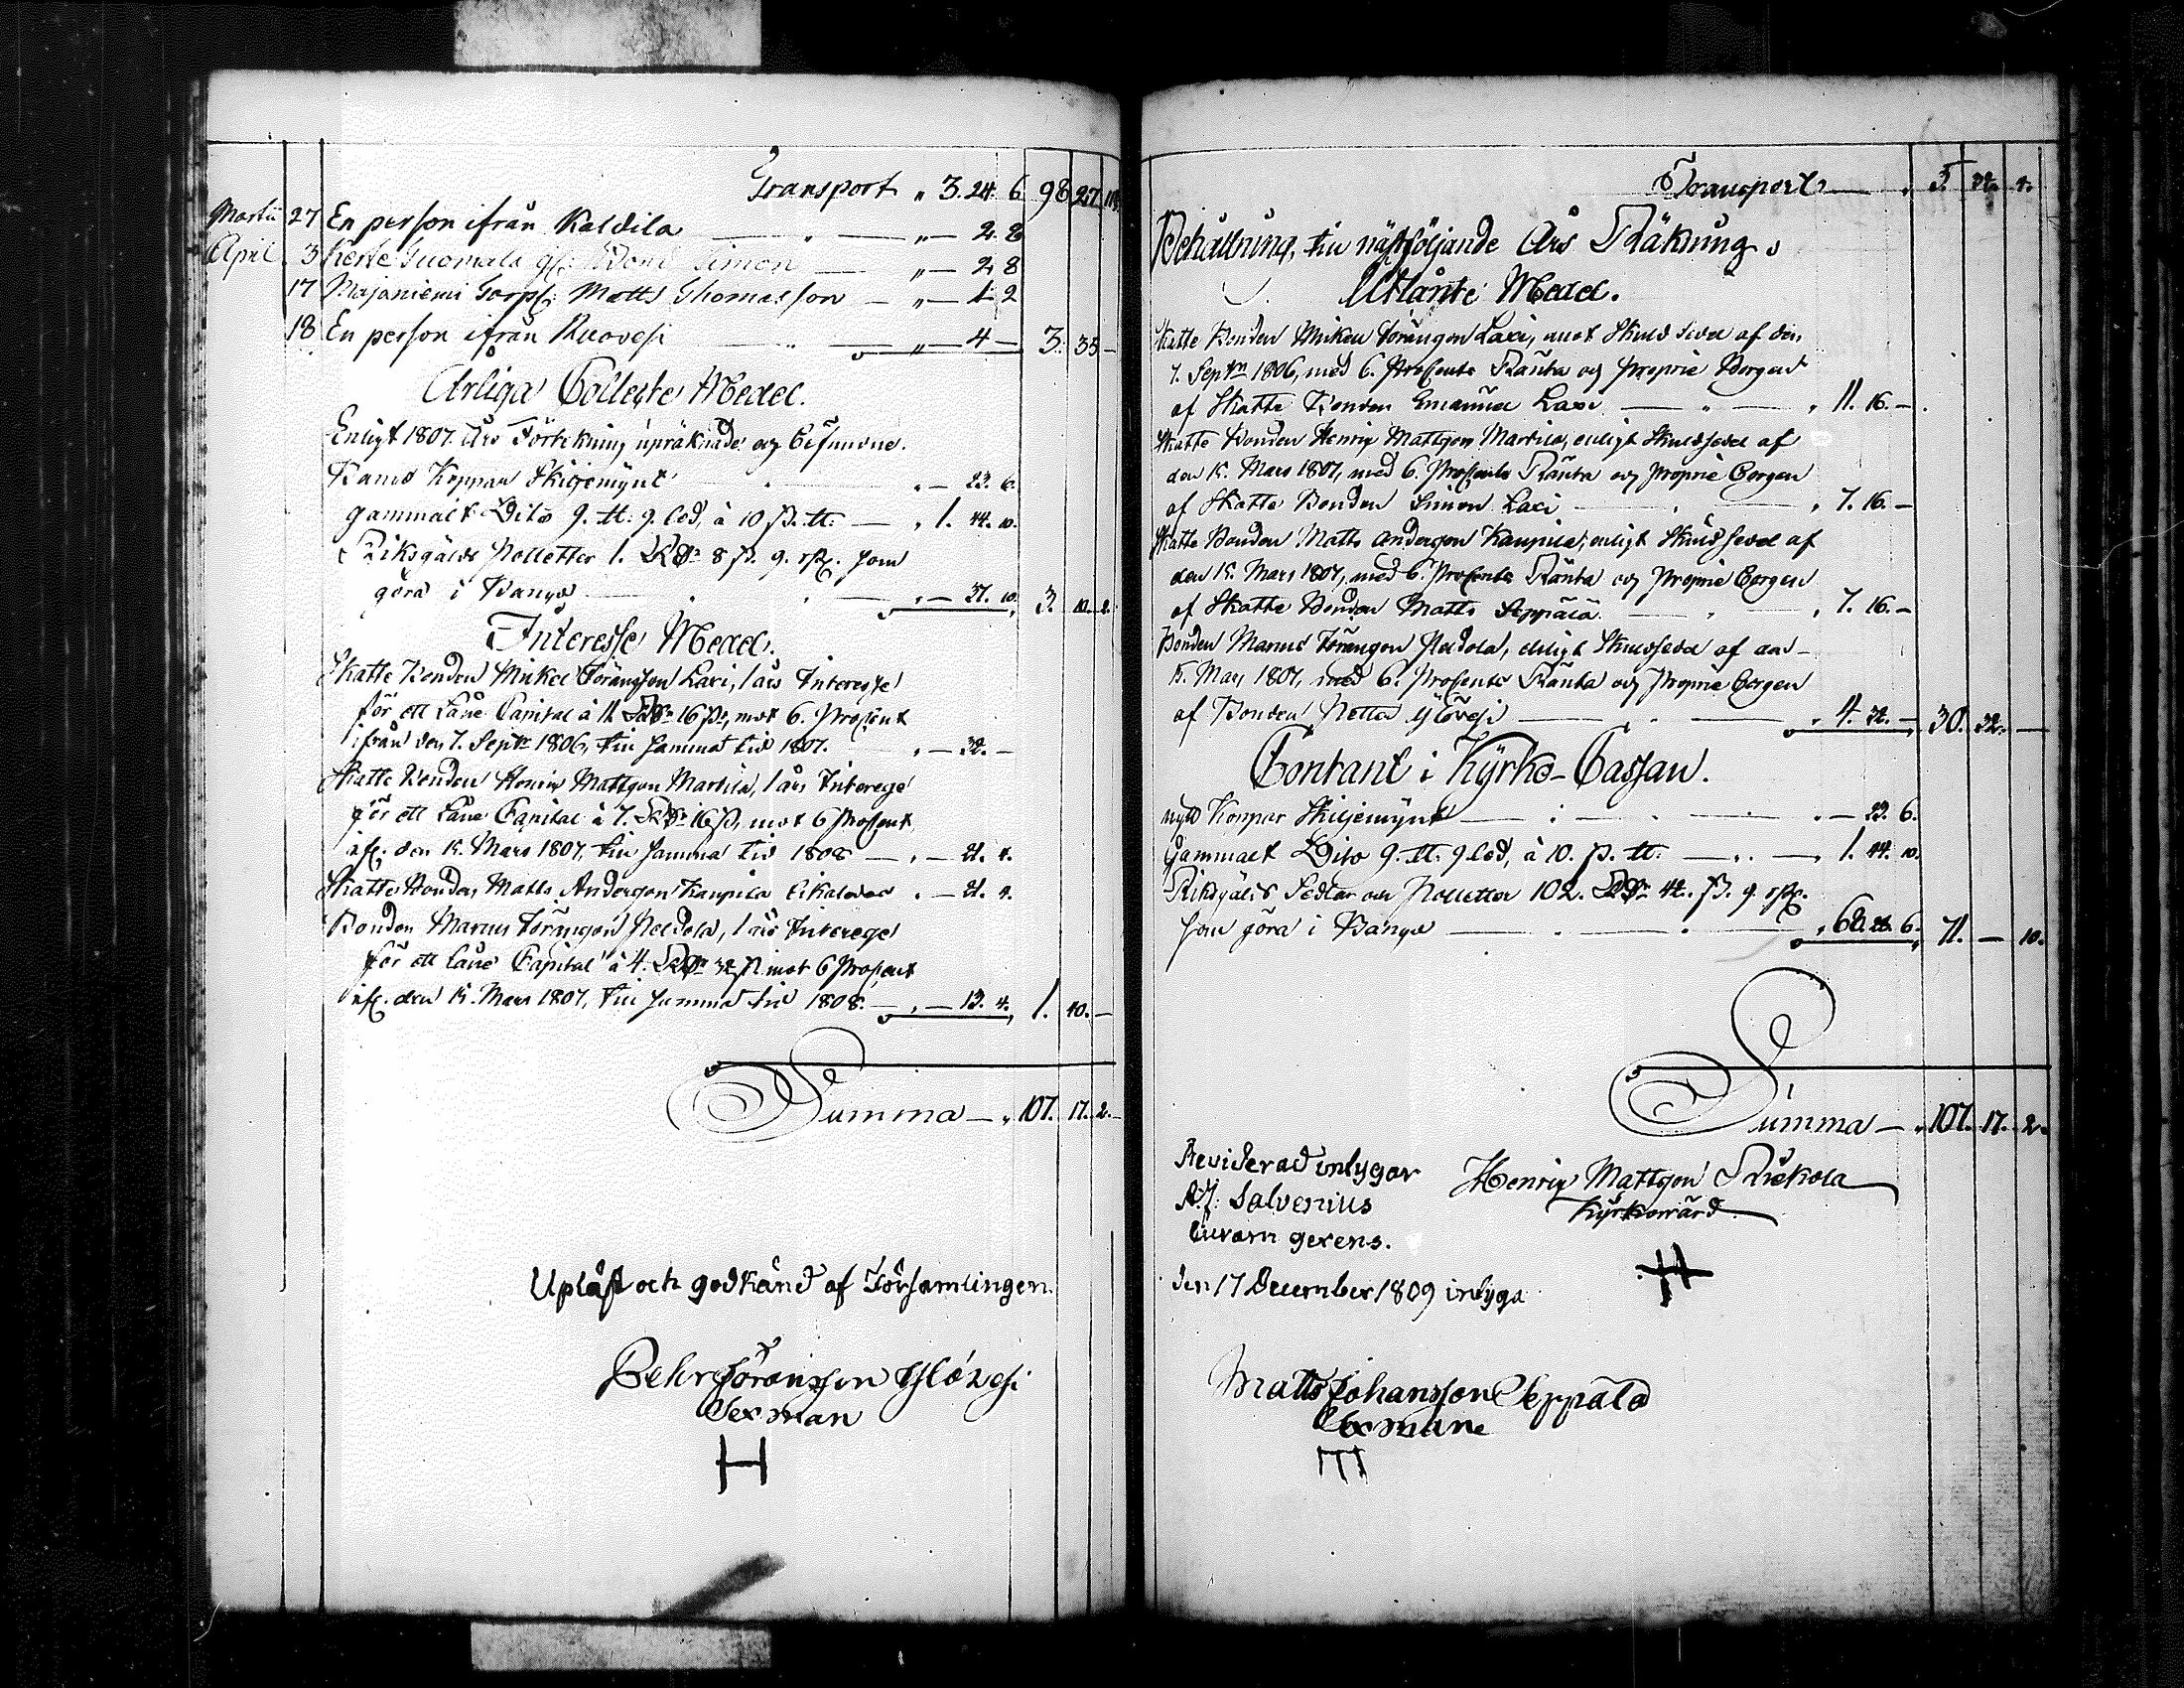 Transport " 3. 24. 6 98 27 11
Martii 27 En person ifrån Kaldila — " — 2. 8
April 3 Simon — " — 2. 8
17 Majaniemi Torps: Matts Thomasson — " — 1. 2
18 En person ifrån Ruovesi — " — 4 — 3. 35 —
Årliga Collecte Medel.
Enligt 1807. Års Förtekning upräknade og befundne.
Banco Koppar Skiljemynt " — 23. 6.
gammalt Dito 9. tt: 9. lod, à 10 ß. tt: — " 1. 44. 10.
Riksgälds Polletter 1. RD 8 ß. 9. som
göra i Banco — " — 37. 10. 3. 10. 2.
Interesse Medel.
Skatte Bonden Mickel Göransson Laxi, 1 års Interesse
för ett Låne Capital à 11. RD 16 ß, mot 6. Procent
ifrån den 7. Septr 1806, till samma tid 1807. " — 32. —
Skatte Bonden Henric Mattsson Martila, 1 års Interesse
för ett Låne Capital à 7. RD 16 ß, mot 6 Procent
den 15. Mars 1807, till samma tid 1808 — " — 21. 4.
Skatte Bonden Matts Andersson Kaupila likaledes " — 21. 4.
Bonden Marcus Göransson Peldola, 1 års Interesse
för ett låne Capital à 4. RD 32 ß mot 6 Procent
den 15. Mars 1807, till samma tid 1808. — " — 13. 4. 1. 40. —
Summa — " 107. 17. 2. —
Upläst och godkänd af Församlingen.
Pehr Göransson Ylövesi
Sexman
H
Transport — " 5. 32. 4.
Behållning, till nästföljande Års Räkning.
Utlånte Medel.
Skatte Bonden Mickel Göransson Laxi, mot Skuld Sedel af den
7. Septr 1806, med 6. Procents Ränta og proprie Borgen
af Skatte Bonden Emanuel Laxi — " — " 11. 16. —
Skatte Bonden Henric Mattsson Martila, enligt Skuldsedel af
den 15. Mars 1807, med 6. Procents Ränta og proprie Borgen
af Skatte Bonden Simon Laxi — " 7. 16. —
Skatte Bonden Matts Andersson Kaupila, enligt Skuldsedel af
den 15. Mars 1807, med 6. Procents Ränta og proprie Borgen
af Skatte Bonden Matts Seppälä — " 7. 16. —
Bonden Marcus Göransson Peldola, enligt Skuldsedel af den
15. Mars 1807, med 6. Procents Ränta og proprie Borgen
af Bonden Ylövesi — " 4. 32. — 30. 32. —
Contant i Kyrko-Cassan.
nytt Koppar Skiljemynt — " — 23. 6.
Gammalt Dito 9. tt: 9 lod, à 10. ß. tt: — " 1. 44. 10.
Riksgälds Sedlar och Polletter 102. RD 42. ß. 9.
som göra i Banco — " 68. 28. 6. 71. — 10.
Summa — " 107. 17. 2.
Reviderad intygar
A: J: Salvenius
Curam gerens.
Henric Mattsson Riekola
Kyrkowärd.
H
den 17 December 1809 intyga
Matts Johansson Seppälä
Sexman